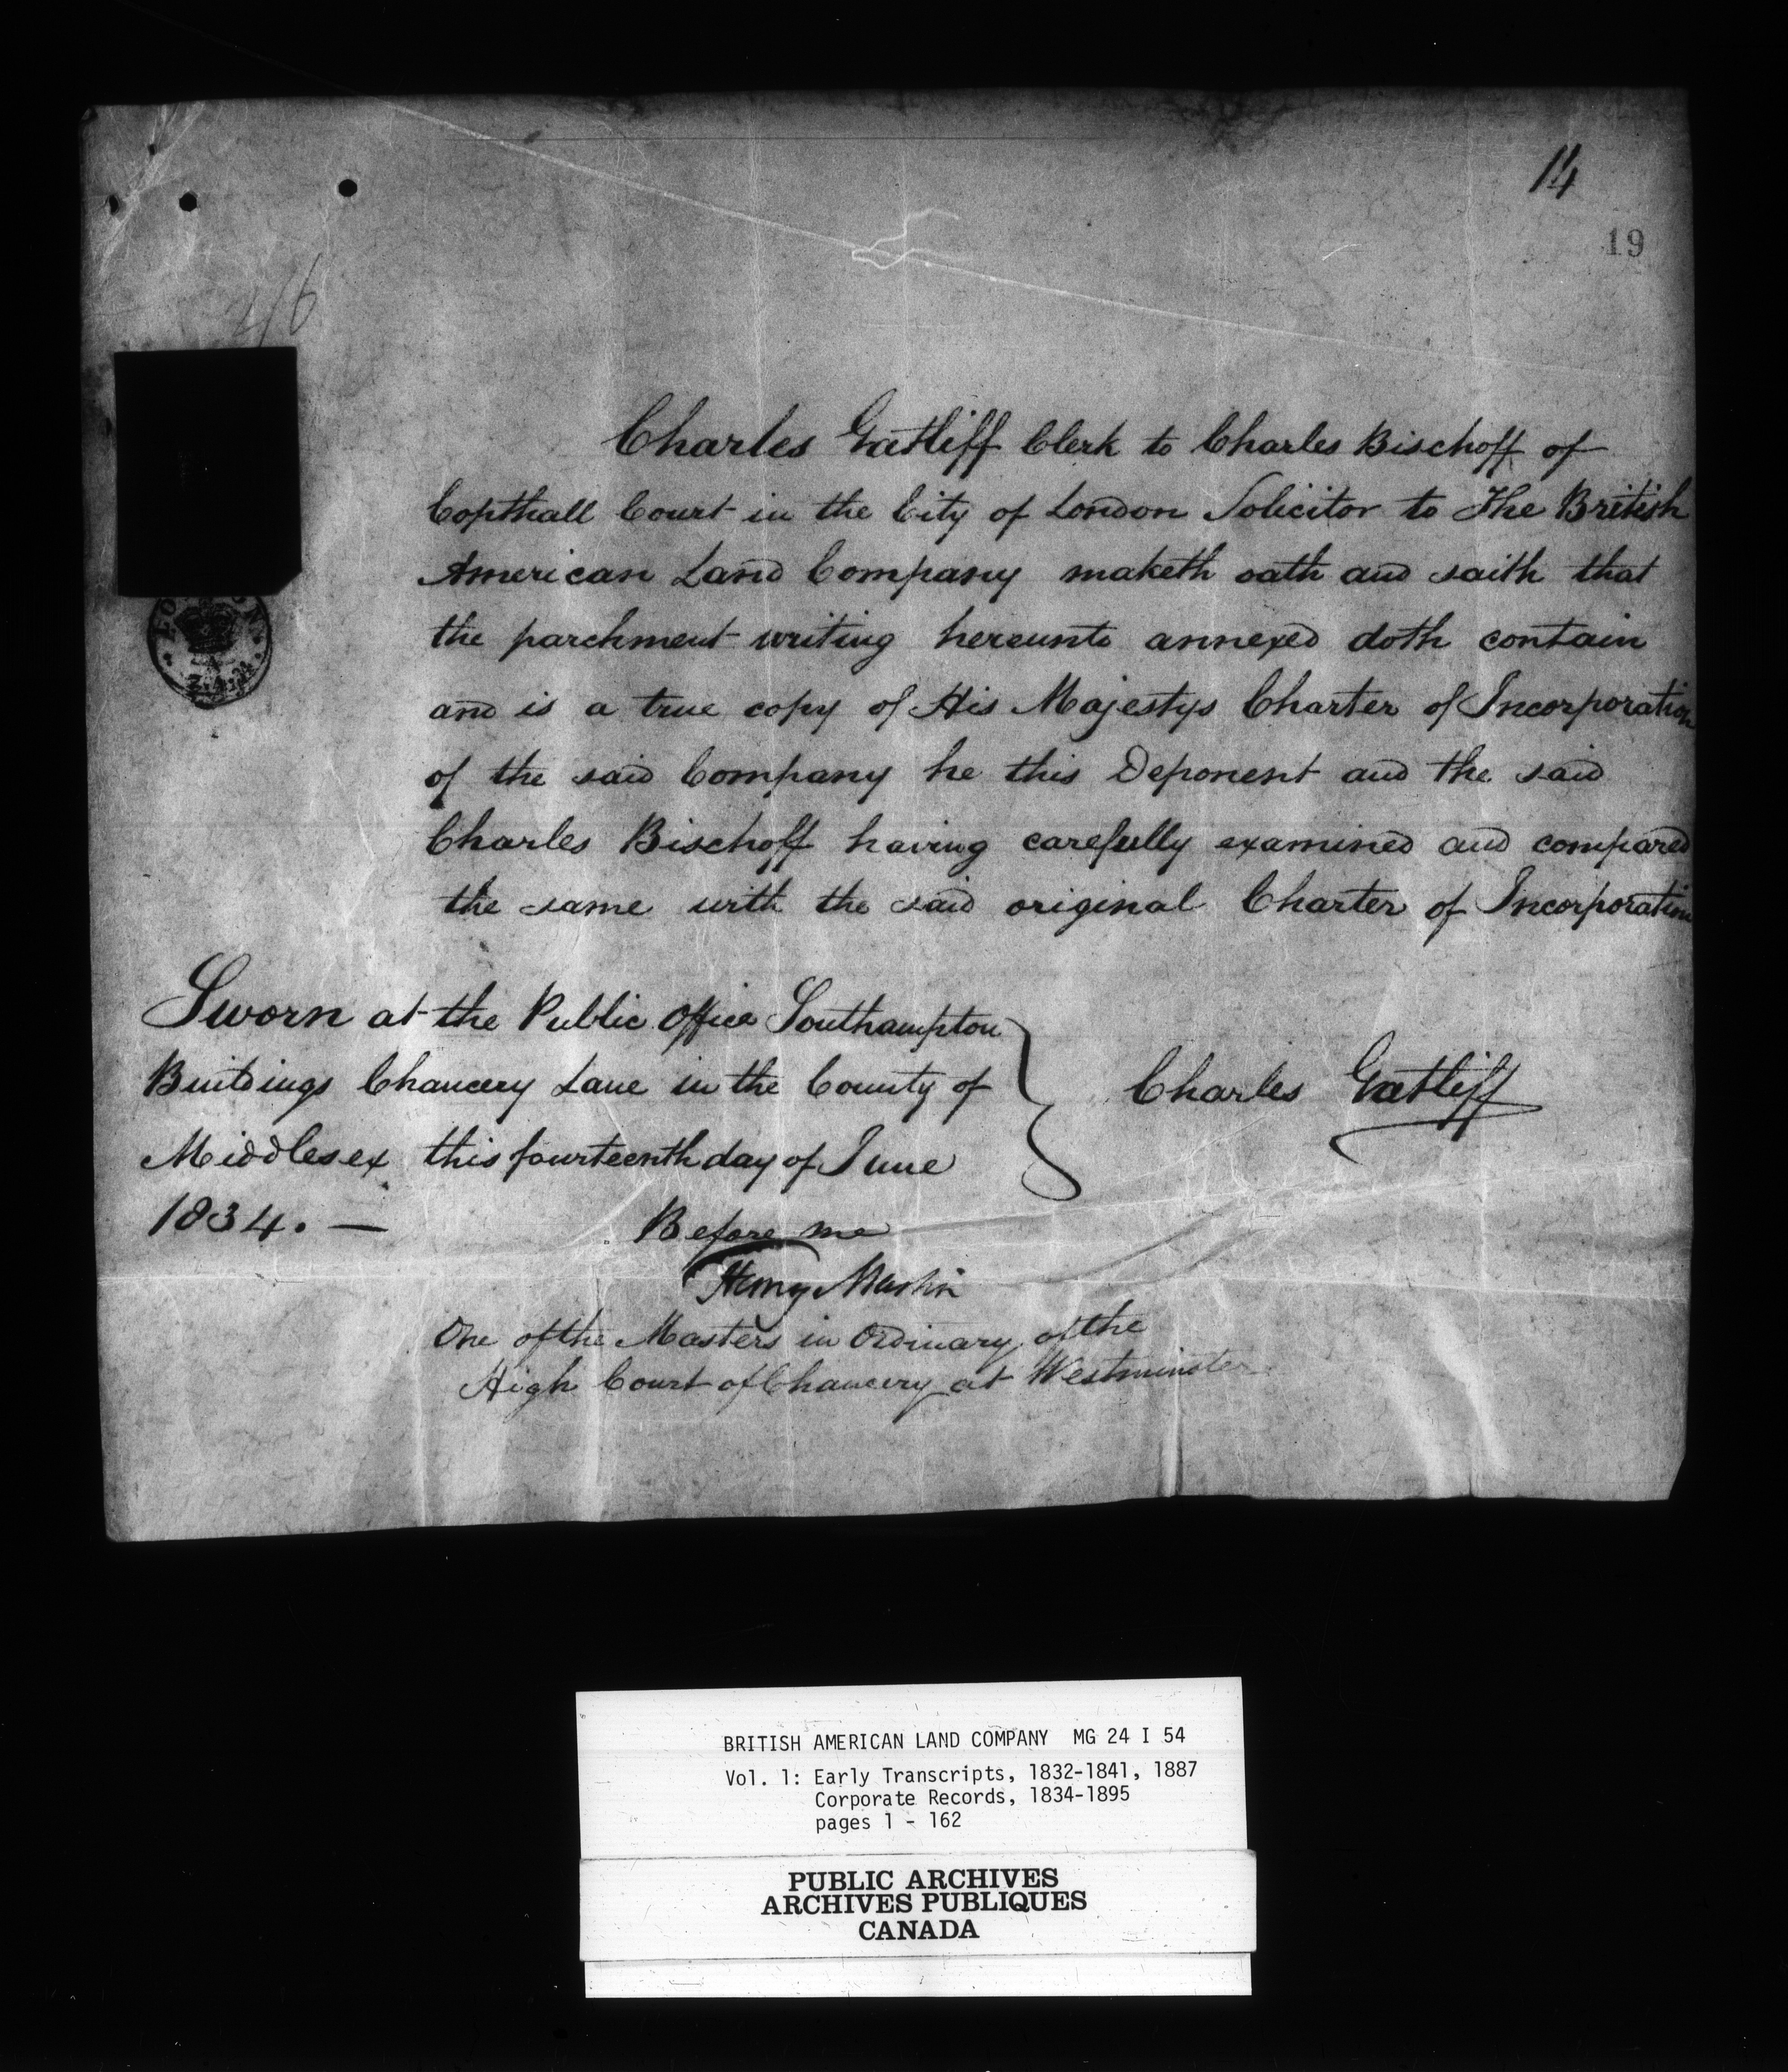 14
19
2/6
Charles Gatliff Clerk to Charles Bischoff of
Copthall Court in the City of London Solicitor to The British
American Land Company maketh oath and saith that
the parchment writing hereunto annexed doth contain
and is a true copy of His Majestys Charter of Incorporation
of the said Company he this Deponent and the said
Charles Bischoff having carefully examined and compared
the same with the said original Charter of Incorporation
Sworn at the Public Office Southampton
Buildings Chancery Lane in the County of
Middlesex this fourteenth day of June
1834. —
Charles Gatliff
Before me
Henry Martin
One of the Masters in Ordinary of the
High Court of Chancery at Westminster
BRITISH AMERICAN LAND COMPANY MG 24 I 54
Vol. 1: Early Transcripts, 1832-1841, 1887
Corporate Records, 1834-1895
pages 1 - 162
PUBLIC ARCHIVES
ARCHIVES PUBLIQUES
CANADA